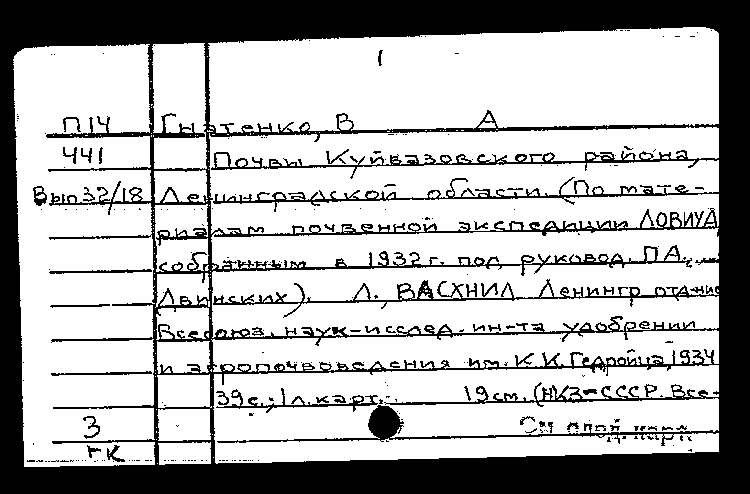 1
П14 Гнатенко, В А
441 Почвы Куйвазовского района,
Вып 32/18 Ленинградской области. (По мате-
риалам почвенной экспедиции ЛОВИУА
собранным в 1932 г. под руковод. П.А.
Двинских). Л., ВАСХНИЛ Ленингр отд-ние
Всесоюз. наук-исслед. ин-та удобрении
и агропочвоведения им. К.К. Гедройца, 1934
39 с.; 1 л. карт. 19 см. (НКЗ-СССР. Все-
3 См след. карт.
гк